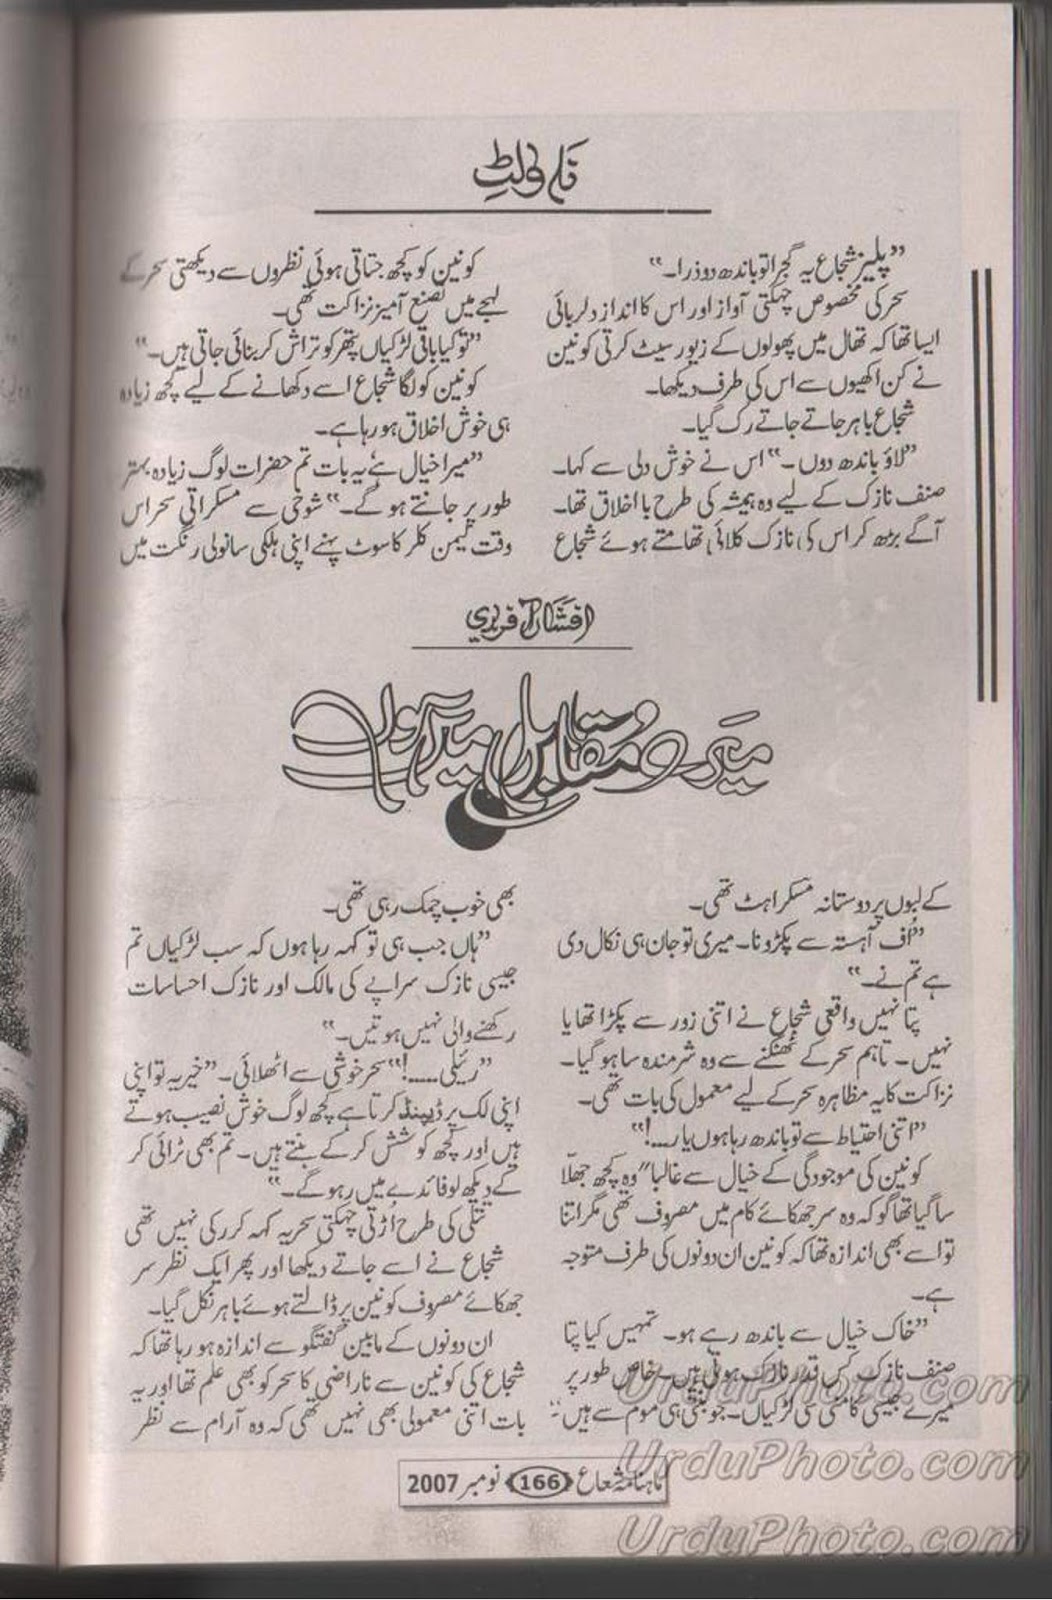 ناولٹ
"پلیز شجاع یہ گجرا تو باندھ دو ذرا۔"
سحر کی مخصوص چہکتی آواز اور اس کا انداز دلربائی
ایسا تھا کہ تھال میں پھولوں کے زیور سیٹ کرتی کونین
نے کن اکھیوں سے اس کی طرف دیکھا۔
شجاع باہر جاتے جاتے رک گیا۔
"لاؤ باندھ دوں۔" اس نے خوش دلی سے کہا۔
صنف نازک کے لیے وہ ہمیشہ کی طرح با اخلاق تھا۔
آگے بڑھ کر اس کی نازک کلائی تھامتے ہوئے شجاع
کونین کو کچھ جتاتی ہوئی نظروں سے دیکھتی سحر کے
لہجے میں تصنع آمیز نزاکت تھی۔
"تو کیا باقی لڑکیاں پتھر کو تراش کر بنائی جاتی ہیں۔"
کونین کو لگا شجاع اسے دکھانے کے لیے کچھ زیادہ
ہی خوش اخلاق ہو رہا ہے۔
"میرا خیال ہے یہ بات تم حضرات لوگ زیادہ بہتر
طور پر جانتے ہو گے۔" شوخی سے مسکراتی سحر اس
وقت لیمن کلر کا سوٹ پہنے اپنی ہلکی سانولی رنگت میں
افشاں آفریدی
میرے مقابل میں ہوں
کے لبوں پر دوستانہ مسکراہٹ تھی۔
"اُف آہستہ سے پکڑو نا۔ میری تو جان ہی نکال دی
ہے تم نے۔"
پتا نہیں واقعی شجاع نے اتنی زور سے پکڑا تھا یا
نہیں۔ تاہم سحر کے ٹھنکنے سے وہ شرمندہ سا ہو گیا۔
نزاکت کا یہ مظاہرہ سحر کے لیے معمول کی بات تھی۔
"اتنی احتیاط سے تو باندھ رہا ہوں یار...!"
کونین کی موجودگی کے خیال سے غالباً وہ کچھ جھلّا
سا گیا تھا گو کہ وہ سر جھکائے کام میں مصروف تھی مگر اتنا
تو اسے بھی اندازہ تھا کہ کونین ان دونوں کی طرف متوجہ
ہے۔
"خاک خیال سے باندھ رہے ہو۔ تمہیں کیا پتا
صنف نازک کس قدر نازک ہوتی ہیں۔ خاص طور پر
میرے جیسی کامنی سی لڑکیاں۔ جو بنتی ہی موم سے ہیں۔"
بھی خوب چمک رہی تھی۔
"ہاں جب ہی تو کہہ رہا ہوں کہ سب لڑکیاں تم
جیسی نازک سراپے کی مالک اور نازک احساسات
رکھنے والی نہیں ہوتیں۔"
"رئیلی.....!" سحر خوشی سے اٹھلائی۔ "خیر یہ تو اپنی
اپنی لک پر ڈیپنڈ کرتا ہے کچھ لوگ خوش نصیب ہوتے
ہیں اور کچھ کوشش کر کے بنتے ہیں۔ تم بھی ٹرائی کر
کے دیکھ لو فائدے میں رہو گے۔"
تتلی کی طرح اُڑتی چہکتی سحر یہ کہہ کر رکی نہیں تھی
شجاع نے اسے جاتے دیکھا اور پھر ایک نظر سر
جھکائے مصروف کونین پر ڈالتے ہوئے باہر نکل گیا۔
ان دونوں کے مابین گفتگو سے اندازہ ہو رہا تھا کہ
شجاع کی کونین سے ناراضی کا سحر کو بھی علم تھا اور یہ
بات اتنی معمولی بھی نہیں تھی کہ وہ آرام سے نظر
ماہنامہ شعاع 166 نومبر 2007
UrduPhoto.com
UrduPhoto.com
UrduPhoto.com